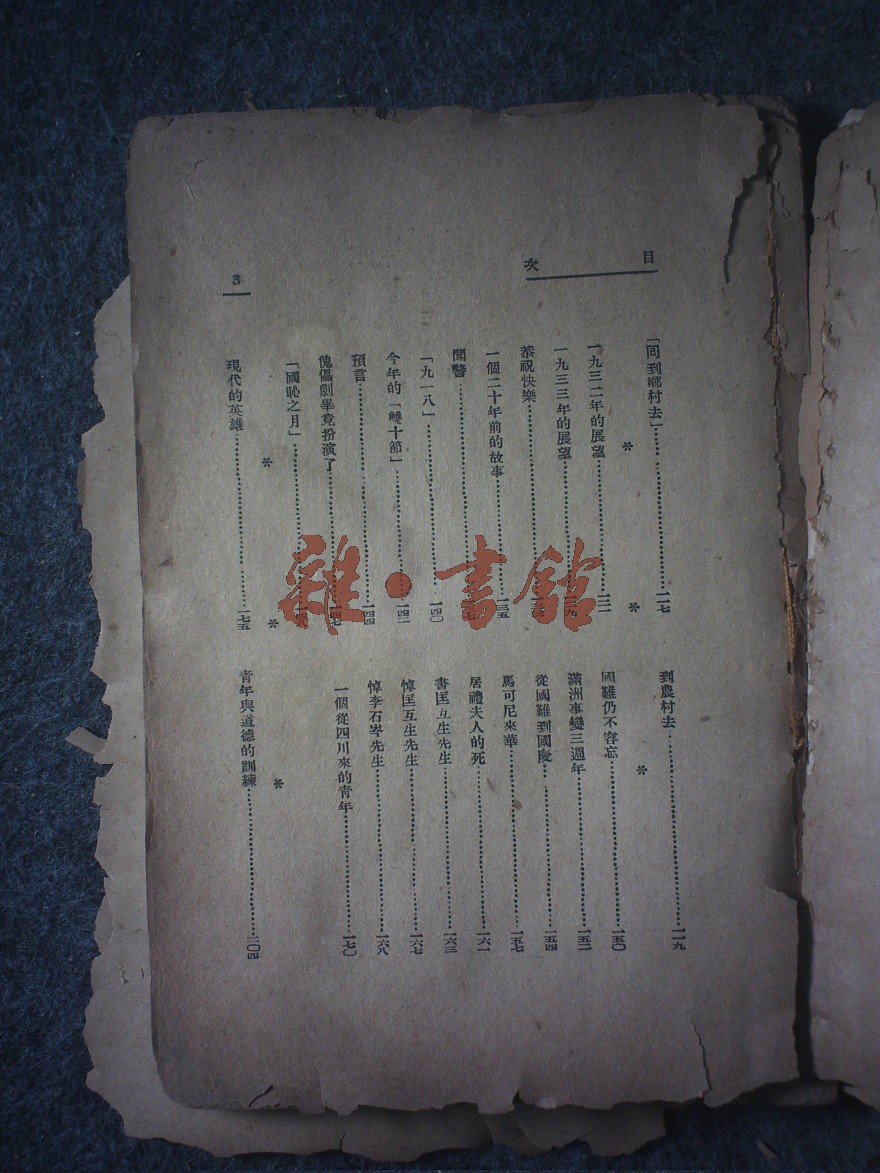 目次
「回到鄉村去」……一一七
＊
一九三二年的展望……一二二
一九三三年的展望
恭祝快樂
一個二十年前的故事……一三五
聞警
「九一八」……一四〇
今年的「雙十節」……一四二
預言……一四四
傀儡劇畢竟扮演了……一四七
「國恥之月」
＊
現代的英雄……一七五
3
＊
到農村去……一一九
＊
國難仍不容忘……一五〇
滿洲事變三週年……一五二
從國難到國慶……一五四
馬可尼來華……一五七
居禮夫人的死……一六一
書匡互生先生……一六三
悼匡互生先生……一六七
悼李石岑先生……一六八
一個從四川來的青年……一七〇
＊
＊
青年與道德的訓練……二〇四
雜·書館